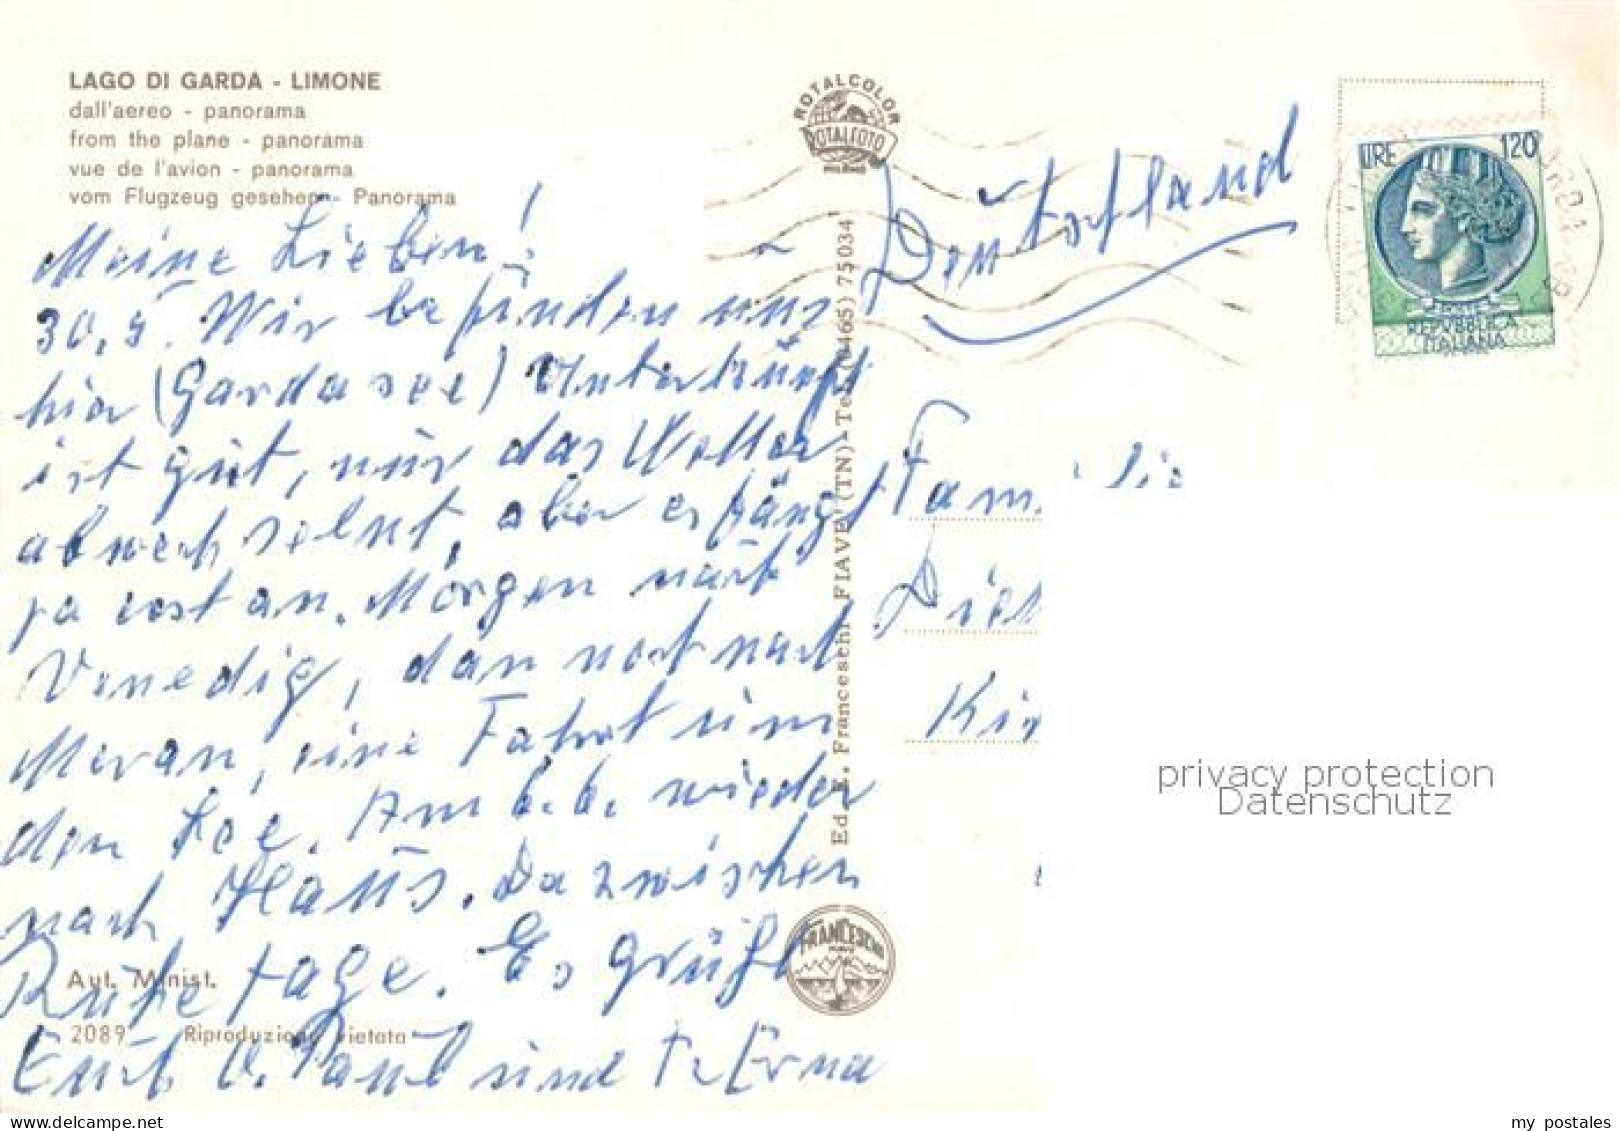 LAGO DI GARDA - LIMONE
dall'aereo - panorama
from the plane - panorama
vue de l'avion - panorama
vom Flugzeug gesehen - Panorama
Meine Lieben!
30.5. Wir befinden uns
hier (Gardasee) Unterkunft
ist gut, nur das Wetter
abwechselnt, aber es fängt
ja erst an. Morgen nach
Venedig, dan noch nach
Meran, eine Fahrt um
den See. Am 6.6. wieder
nach Haus. Dazwischen
Ruhetage. Es grüßt
Euch O. Paul und T. Erna
Aut. Minist.
2089 Riproduzione vietata
ROTALCOLOR
ROTALFOTO
MILANO
Ed. K. Franceschi - FIAVE' (TN) - Tel. (0465) 75034
FRANCESCHI
FIAVE
Deutschland
LIRE 120
REPVBBLICA
ITALIANA
Familie
privacy protection
Datenschutz
my postales